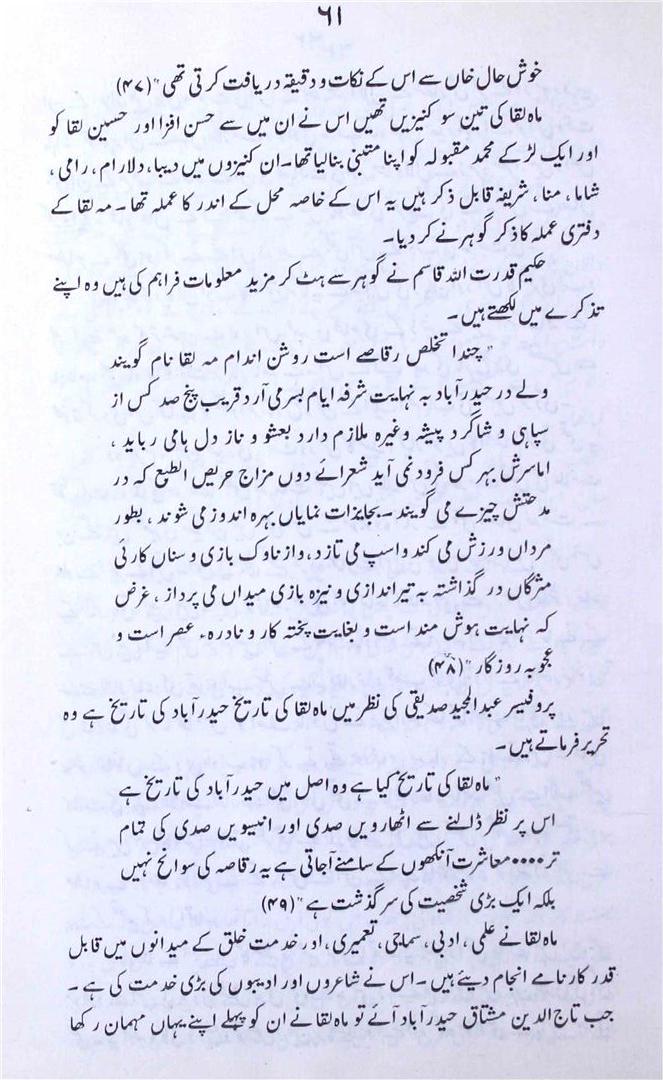 ۶۱
خوش حال خاں سے اس کے نکات و دقیقہ دریافت کرتی تھی"(۴۷)
ماہ لقا کی تین سو کنیزیں تھیں اس نے ان میں سے حسن افزا اور حسین لقا کو
اور ایک لڑکے محمد مقبولہ کو اپنا متبنیٰ بنالیا تھا۔ان کنیزوں میں دیبا، دلارام، رامی،
شاما، منا، شریفہ قابل ذکر ہیں یہ اس کے خاصہ محل کے اندر کا عملہ تھا۔ مہ لقا کے
دفتری عملہ کا ذکر گوہر نے کر دیا۔
حکیم قدرت اللہ قاسم نے گوہر سے ہٹ کر مزید معلومات فراہم کی ہیں وہ اپنے
تذکرے میں لکھتے ہیں۔
"چندا تخلص رقاصے است روشن اندام مہ لقا نام گویند
ولے در حیدرآباد بہ نہایت شرفہ ایام بسر می آرد قریب پنج صد کس از
سپاہی و شاگرد پیشہ وغیرہ ملازم دارد بعشو و ناز دل ہامی رباید،
اماسرش بہر کس فرودنمی آید شعرائے دوں مزاج حریص الطبع کہ در
مدحتش چیزے می گویند۔ بجایزات نمایاں بہرہ اندوز می شوند، بطور
مرداں ورزش می کند واسپ می تازد، واز ناوک بازی و سناں کارئی
مژگاں در گذاشتہ بہ تیراندازی و نیزہ بازی میداں می پرداز، غرض
کہ نہایت ہوش مند است و بغایت پختہ کار و نادرہ۔ عصر است و
عجوبہ روزگار"(۴۸)
پروفیسر عبدالمجید صدیقی کی نظر میں ماہ لقا کی تاریخ حیدرآباد کی تاریخ ہے وہ
تحریر فرماتے ہیں۔
"ماہ لقا کی تاریخ کیا ہے وہ اصل میں حیدرآباد کی تاریخ ہے
اس پر نظر ڈالنے سے اٹھارویں صدی اور انیسویں صدی کی تمام
تر۰۰۰۰ معاشرت آنکھوں کے سامنے آجاتی ہے یہ رقاصہ کی سوانح نہیں
بلکہ ایک بڑی شخصیت کی سرگذشت ہے"(۴۹)
ماہ لقا نے علمی، ادبی، سماجی، تعمیری، اور خدمت خلق کے میدانوں میں قابل
قدر کارنامے انجام دیئے ہیں۔ اس نے شاعروں اور ادیبوں کی بڑی خدمت کی ہے۔
جب تاج الدین مشتاق حیدرآباد آئے تو ماہ لقا نے ان کو پہلے اپنے یہاں مہمان رکھا